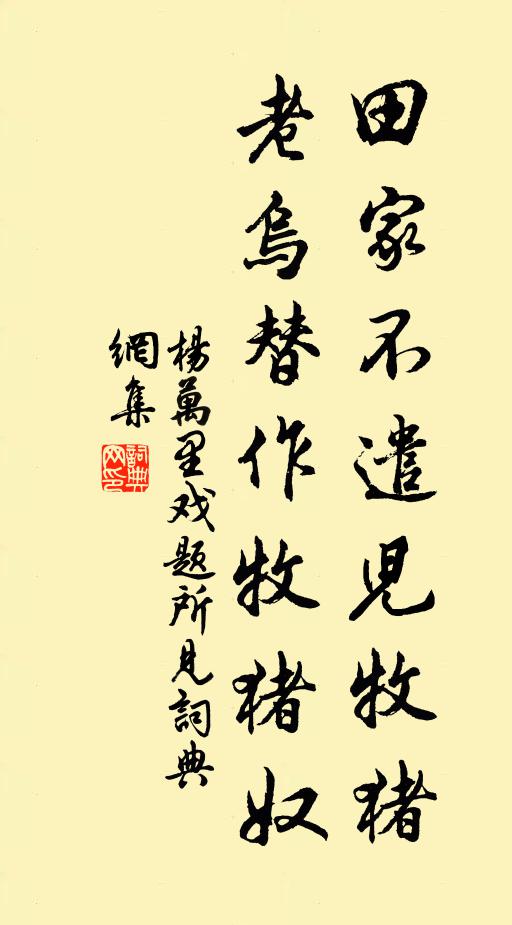 田家不遣兒牧猪
老烏替作牧猪奴
楊萬里戏題所見詞典
網集
詞典
网印